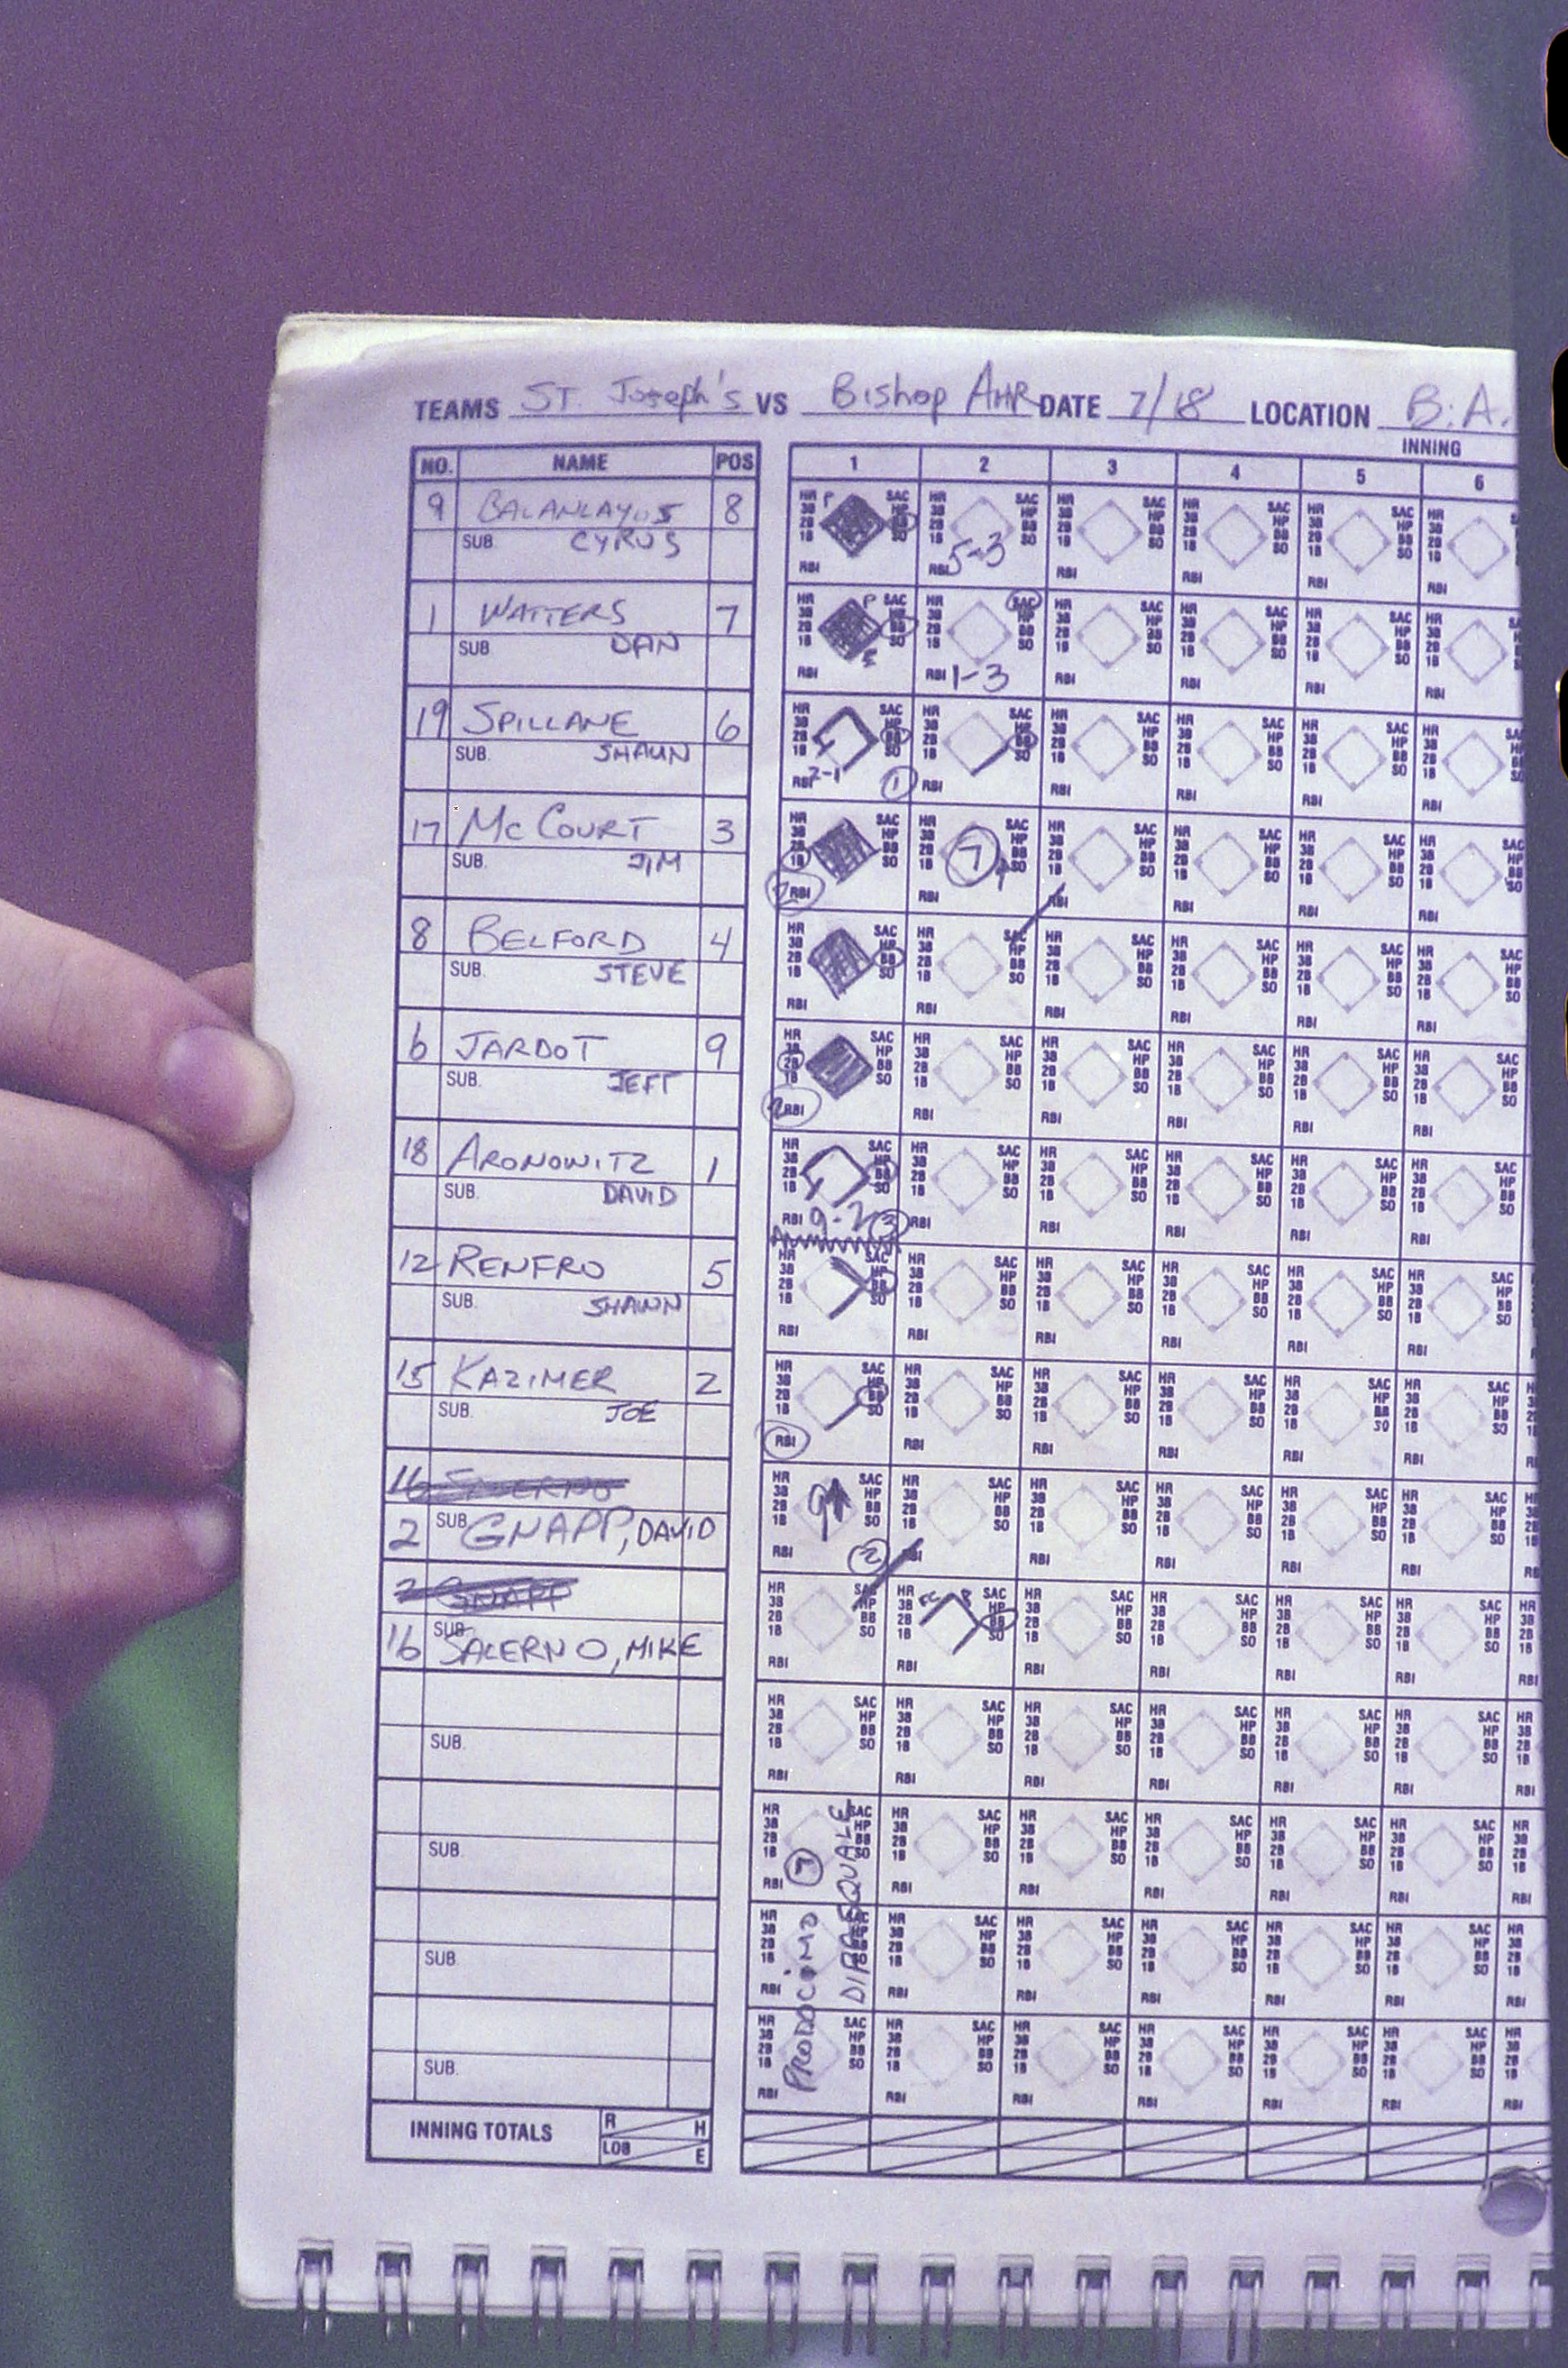 TEAMS ST. Joseph's VS Bishop AHR DATE 7/18 LOCATION B.A.
INNING
NO. NAME POS 1 2 3 4 5 6
9 8
SUB CYRUS
5-3
1 WATTERS 7
SUB DAN
1-3
19 SPILLANE 6
SUB. SHAUN
2-1 1
17 McCOURT 3
SUB. JIM
2 7
8 BELFORD 4
SUB. STEVE
6 JARDOT 9
SUB. JEFF
2
18 ARONOWITZ 1
SUB. DAVID
9-2 3
12 RENFRO 5
SUB. SHAWN
15 KAZIMER 2
SUB. JOE
16 SALERNO
9
2 SUB GNAPP, DAVID
2
2 GNAPP
FC 8
16 SUB SALERNO, MIKE
SUB.
SUB.
SUB.
SUB.
7
PRODOCIMO
DIPASQUALE
HR SAC
3B HP
2B BB
1B SO
RBI
INNING TOTALS R H
LOB E